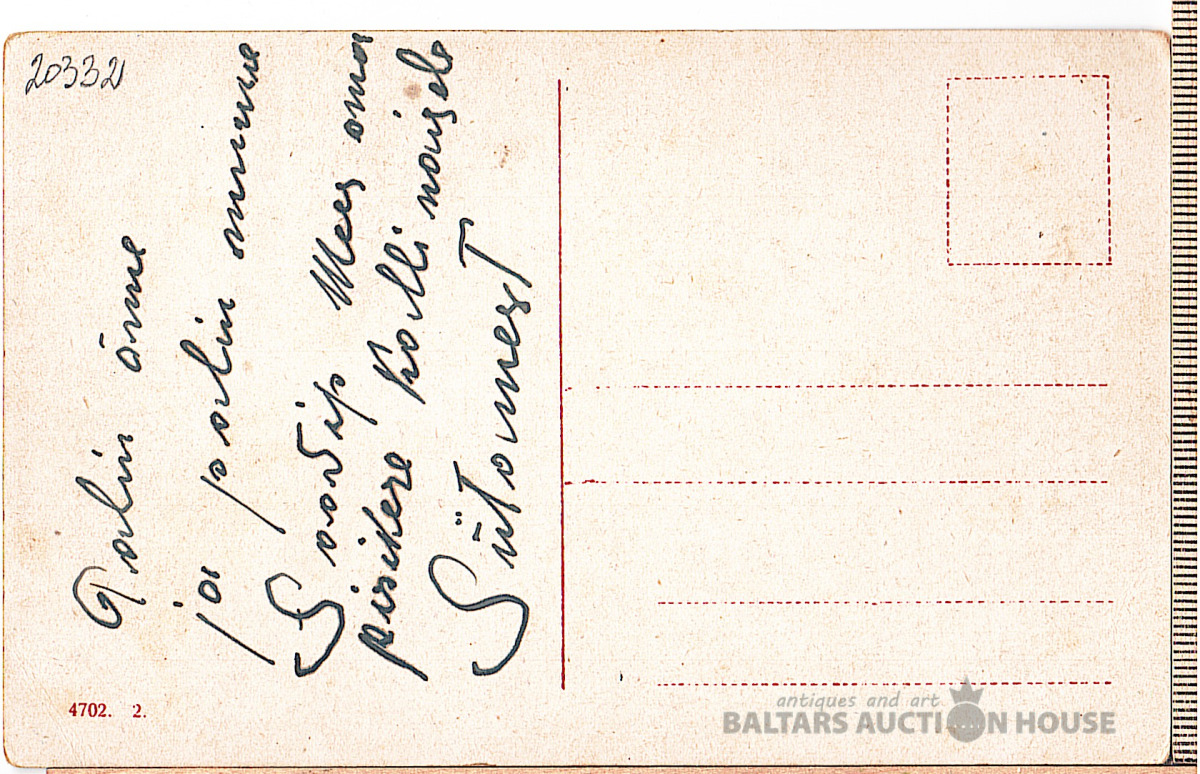 20332
Palin önne
ja palin omme
Soovip Mees oma
pisikese Kolli nöigele
Südamest
4702. 2.
antiques and art
BALTARS AUCTION HOUSE